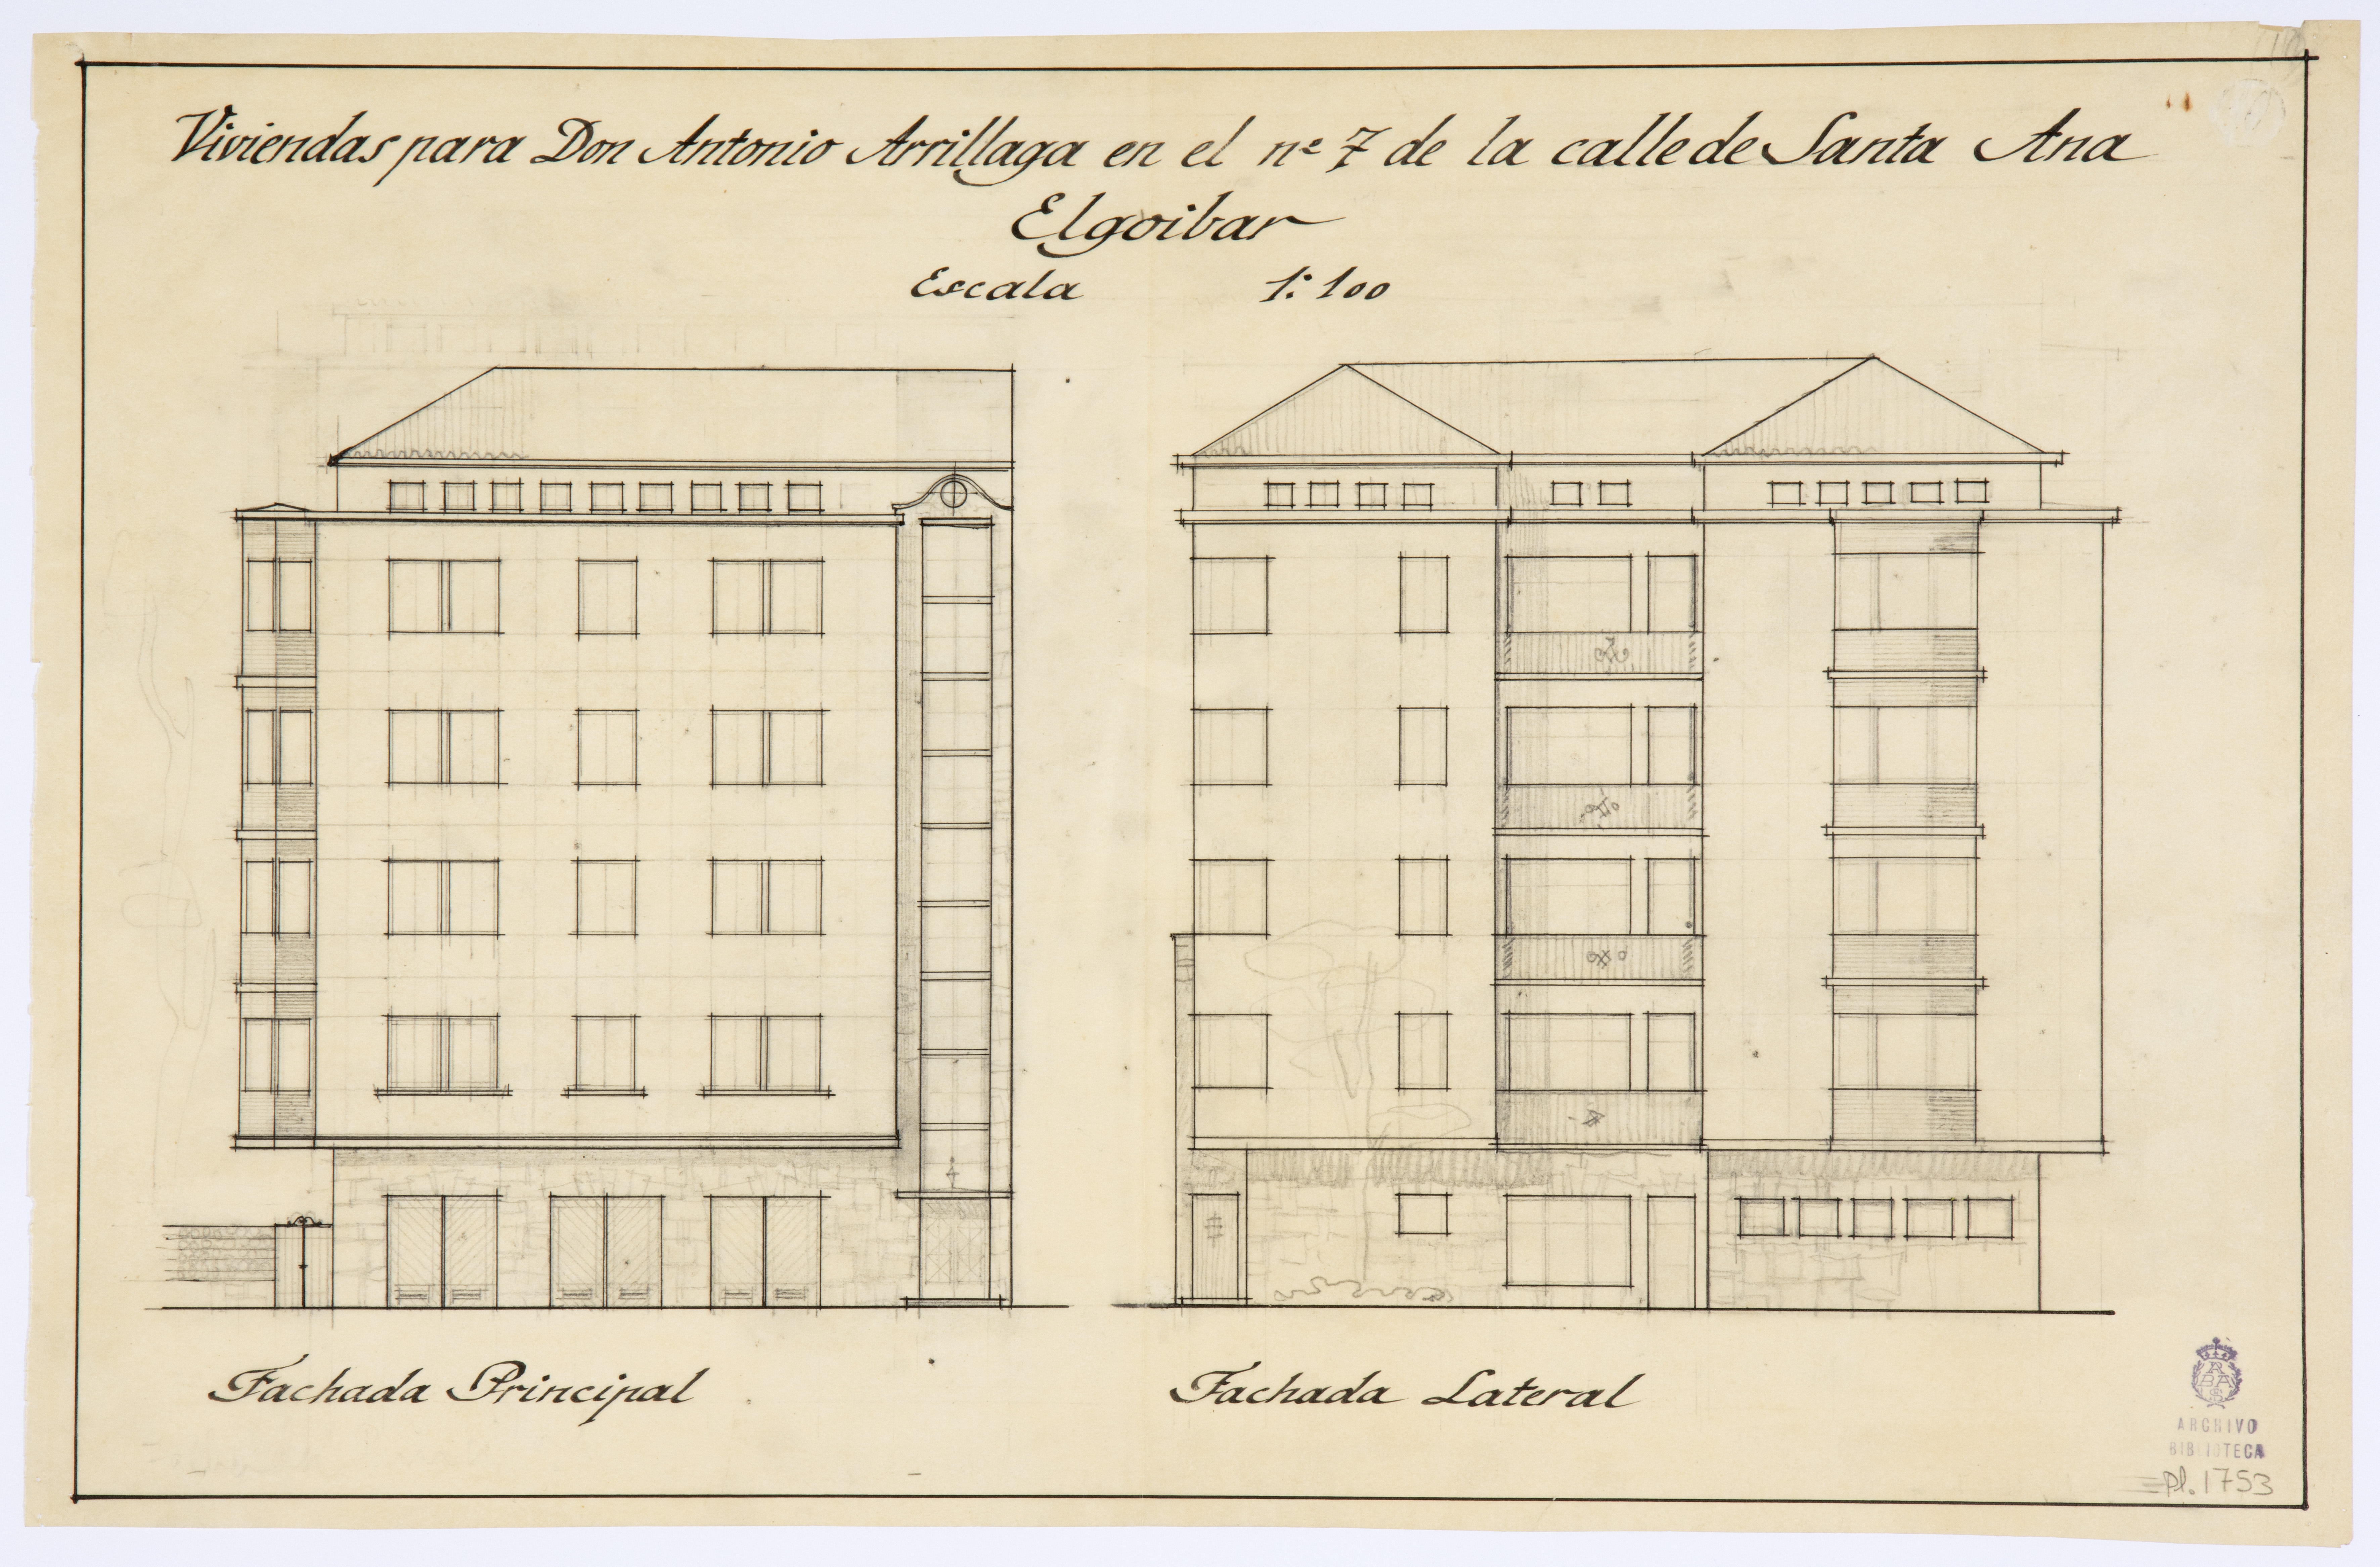 Viviendas para Don Antonio Arrillaga en el nº 7 de la calle de Santa Ana
Elgoibar
Escala 1:100
Fachada Principal
Fachada Lateral
ARCHIVO
BIBLIOTECA
Pl. 1753